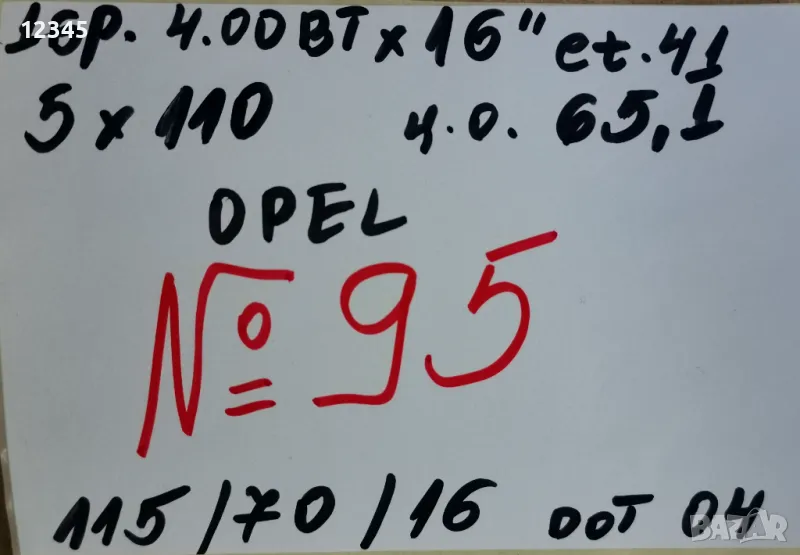 12345
1бр. 4.00BT x 16" et. 41
5 x 110 ч.о. 65,1
OPEL
№ 95
115/70/16 DOT 04
BAZAR